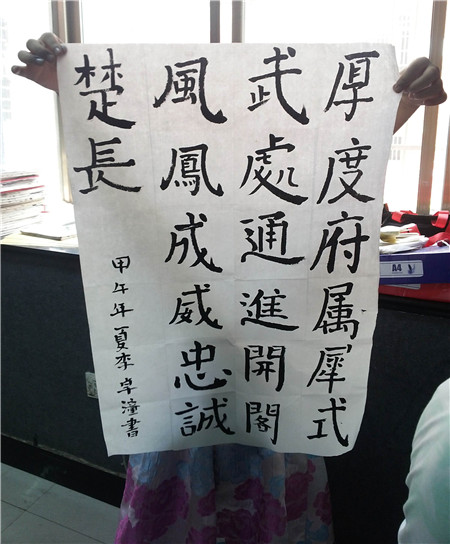 厚度府属犀式
武處通進開閣
風鳳成威忠誠
楚長
甲午年夏李卓潼書
A4